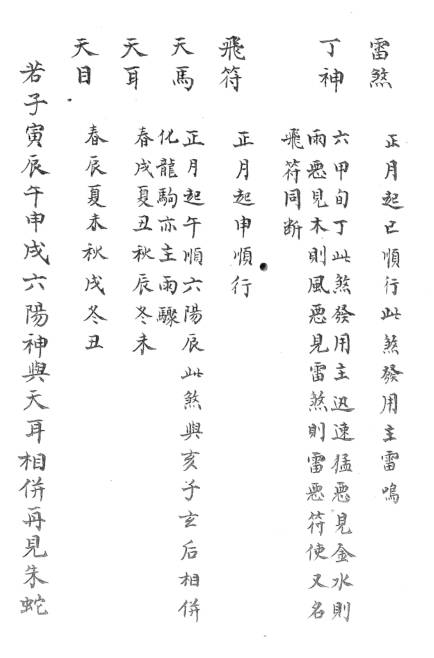 雷煞
正月起巳順行此煞發用主雷鳴
丁神
六甲旬丁此煞發用主迅速猛惡見金水則
雨惡見木則風惡見雷煞則雷惡符使又名
飛符同断
飛符
正月起申順行
天馬
正月起午順六陽辰此煞與亥子玄后相併
化龍駒亦主雨驟
天耳
春戌夏丑秋辰冬未
天目
春辰夏未秋戌冬丑
若子寅辰午申戌六陽神與天耳相併再見朱蛇